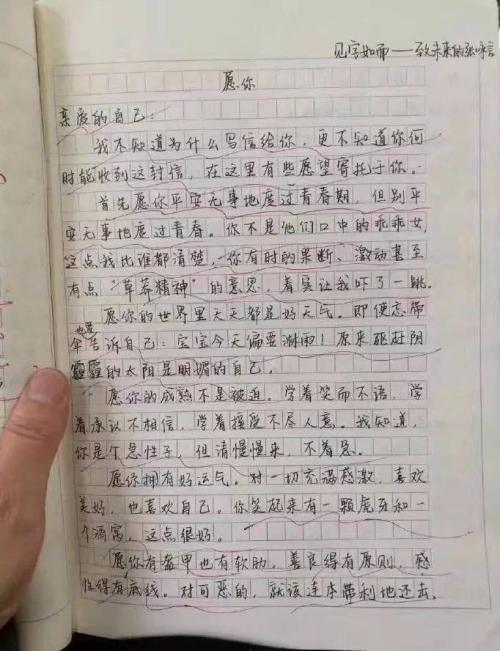 见字如面——致未来的张咏言
愿你
亲爱的自己：
我不知道为什么写信给你，更不知道你何
时能收到这封信，在这里有些愿望寄托于你。
首先愿你平安无事地度过青春期，但别平
安无事地度过青春。你不是他们口中的乖乖女，
这点我比谁都清楚，你有时的果断、激动甚至
有点“草莽精神”的意思，着实让我吓了一跳。
愿你的世界里天天都是好天气。即使忘带
伞也要告诉自己：宝宝今天偏要淋雨！原来死赶阴
霾的太阳是明媚的自己。
愿你的成熟不是被迫。学着笑而不语，学
着承认不相信，学着接受不尽人意。我知道，
你是个急性子，但请慢慢来，不着急。
愿你拥有好运气。对一切充满感激，喜欢
美好，也喜欢自己。你笑起来有一颗虎牙和一
个酒窝，这点很好。
愿你有盔甲也有软肋，善良得有原则，感
性得有底线。对可恶的，就该连本带利地还击。